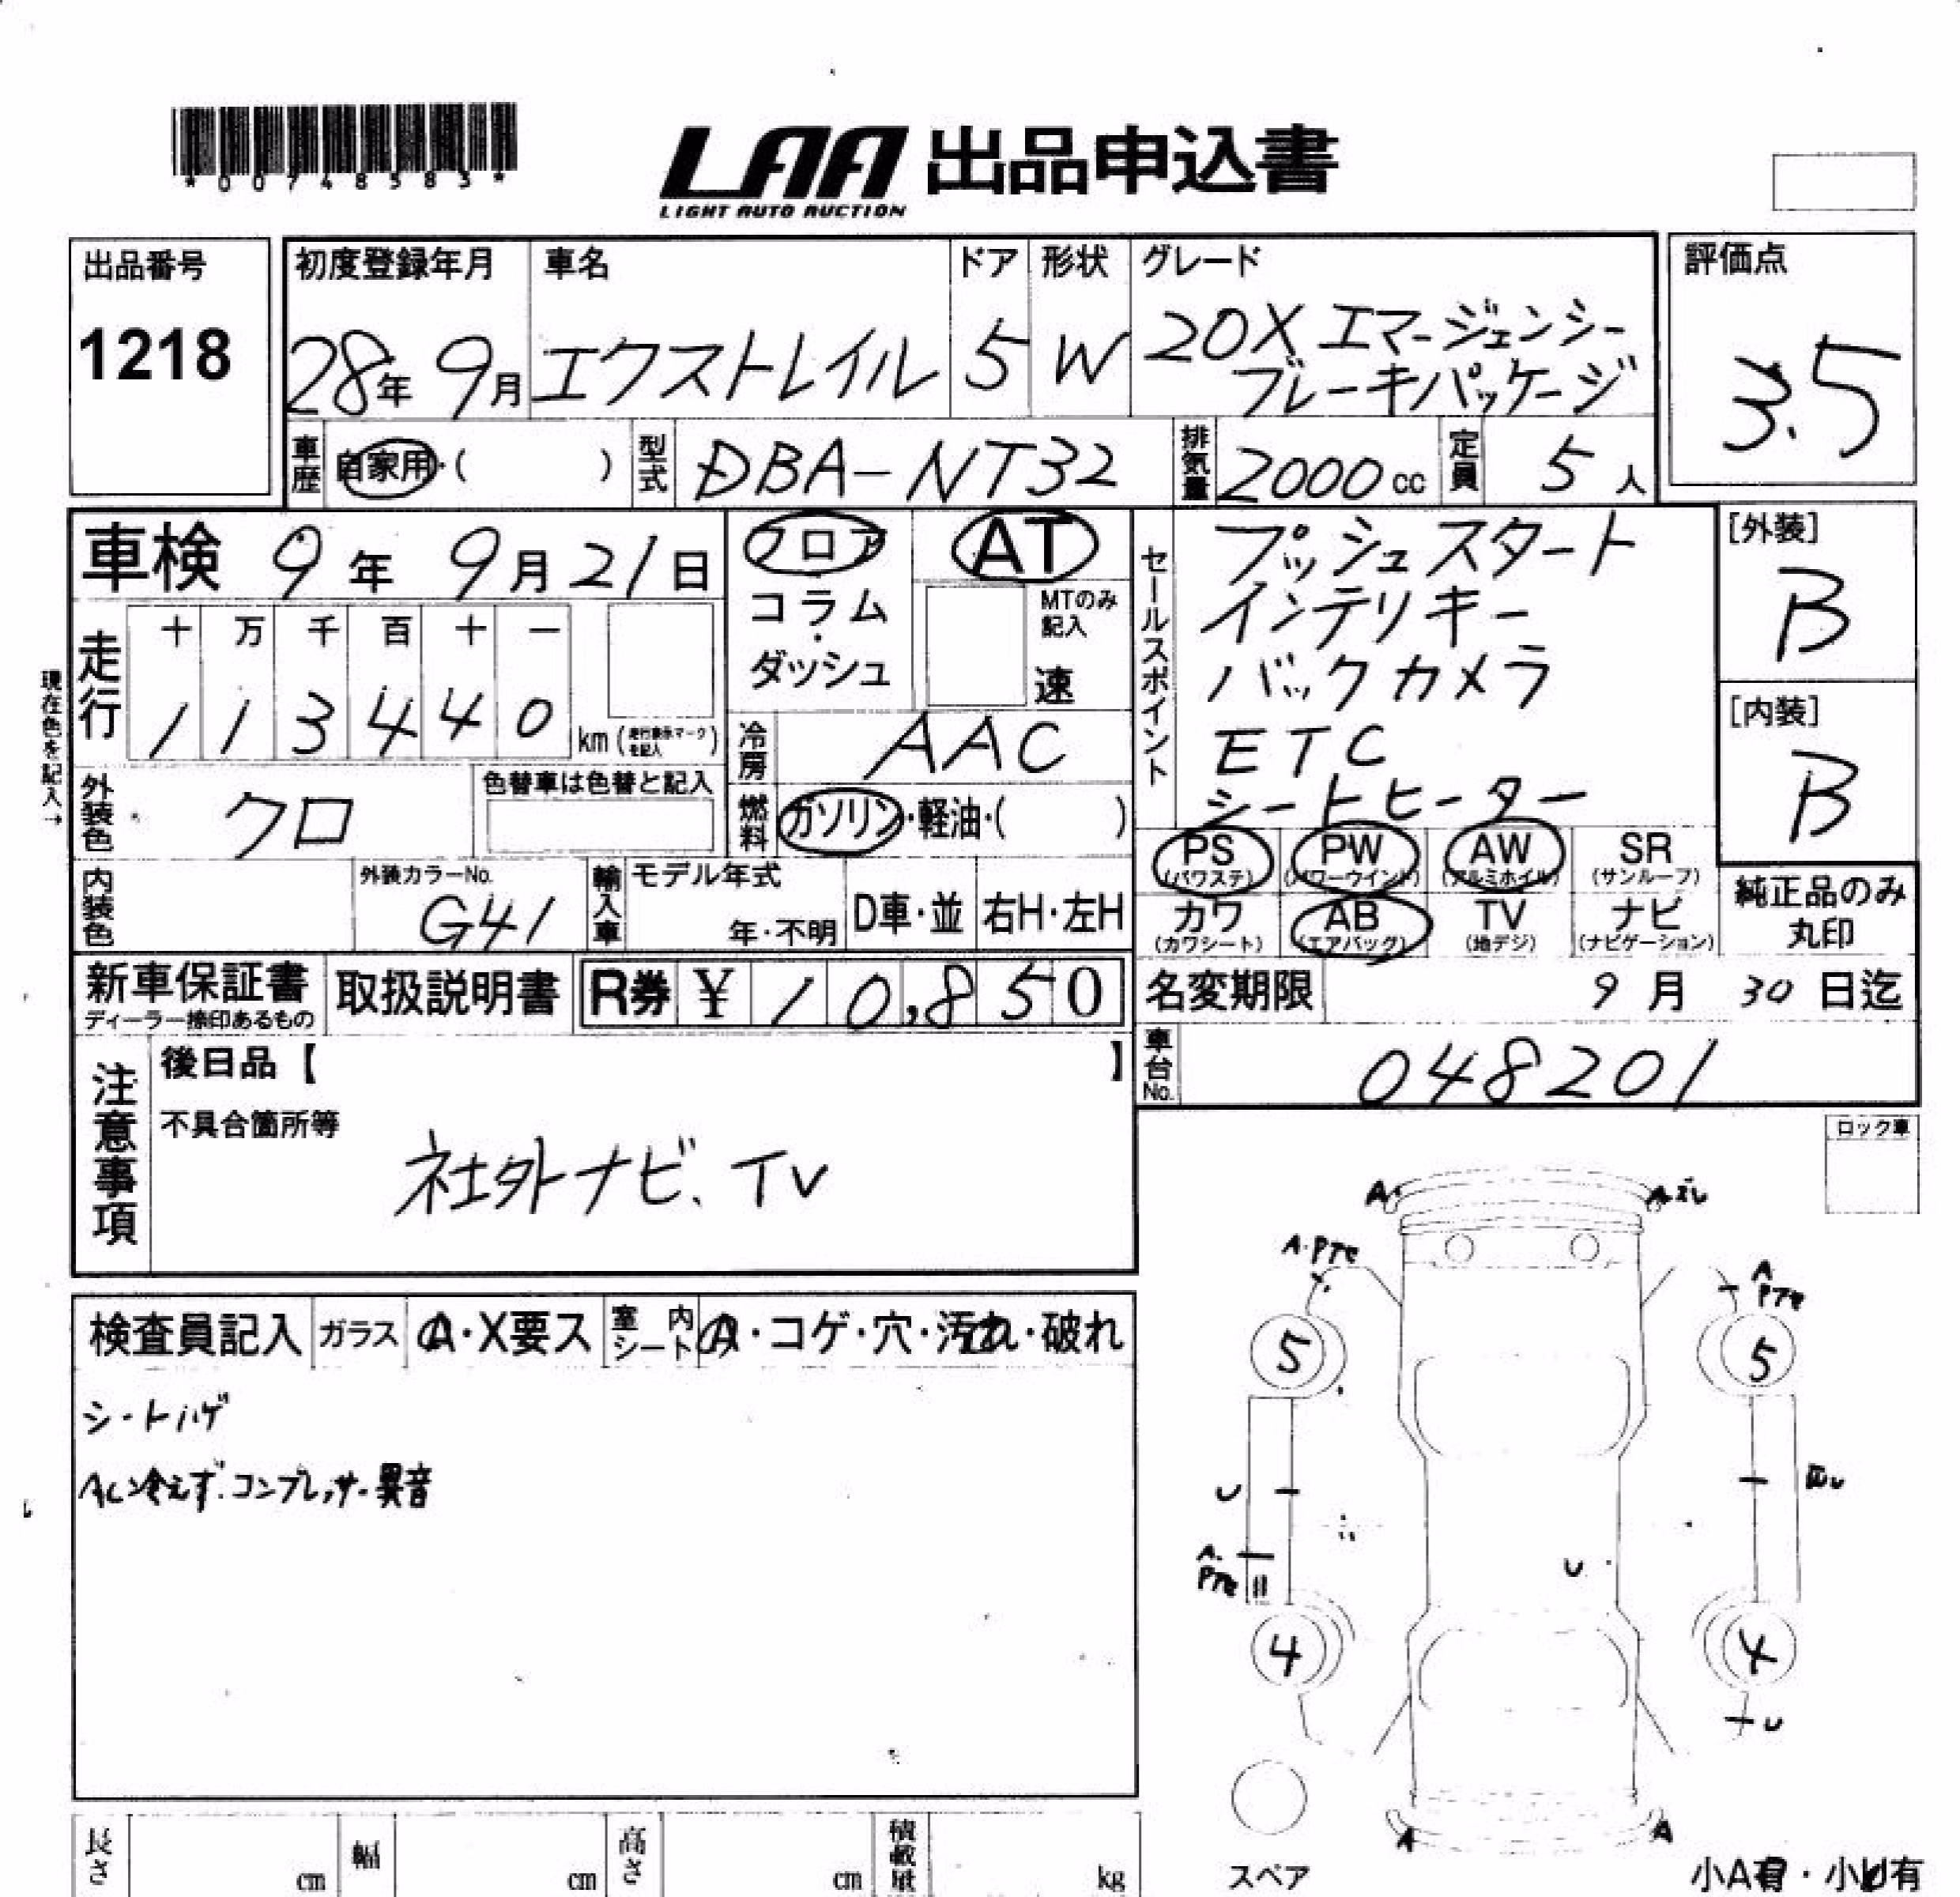 *00748583*
LAA 出品申込書
LIGHT AUTO AUCTION
出品番号
1218
初度登録年月
28年 9月
車名
エクストレイル
ドア
5
形状
W
グレード
20X エマージェンシー
ブレーキパッケージ
評価点
3.5
車歴
自家用・( )
型式
DBA-NT32
排気量
2000 cc
定員
5 人
車検 9 年 9 月 21 日
現在色を記入→
走行
十 万 千 百 十 一
1 1 3 4 4 0 km (走行表示マークを記入)
フロア
コラム
・
ダッシュ
AT
MTのみ
記入
速
冷房
AAC
燃料
ガソリン・軽油・( )
セールスポイント
プッシュスタート
インテリキー
バックカメラ
ETC
シートヒーター
[外装]
B
[内装]
B
外装色
クロ
色替車は色替と記入
内装色
外装カラーNo.
G41
輸入車
モデル年式
年・不明
D車・並
右H・左H
PS
(パワステ)
PW
(パワーウインド)
AW
(アルミホイル)
SR
(サンルーフ)
カワ
(カワシート)
AB
(エアバッグ)
TV
(地デジ)
ナビ
(ナビゲーション)
純正品のみ
丸印
新車保証書
ディーラー捺印あるもの
取扱説明書
R券 ¥ 10,850
名変期限 9 月 30 日迄
車台No.
048201
注意事項
後日品【 】
不具合箇所等
社外ナビ、TV
ロック車
検査員記入
ガラス
A・X要ス
室内シート
A・コゲ・穴・汚れ・破れ
シートハゲ
ACン冷えず.コンプレッサー異音
A
A
A・Pアセ
A
Pアセ
5
5
U
A.
Pアセ
U
4
4
U
A
A
スペア
小A有・小U有
長さ
cm
幅
cm
高さ
cm
積載量
kg